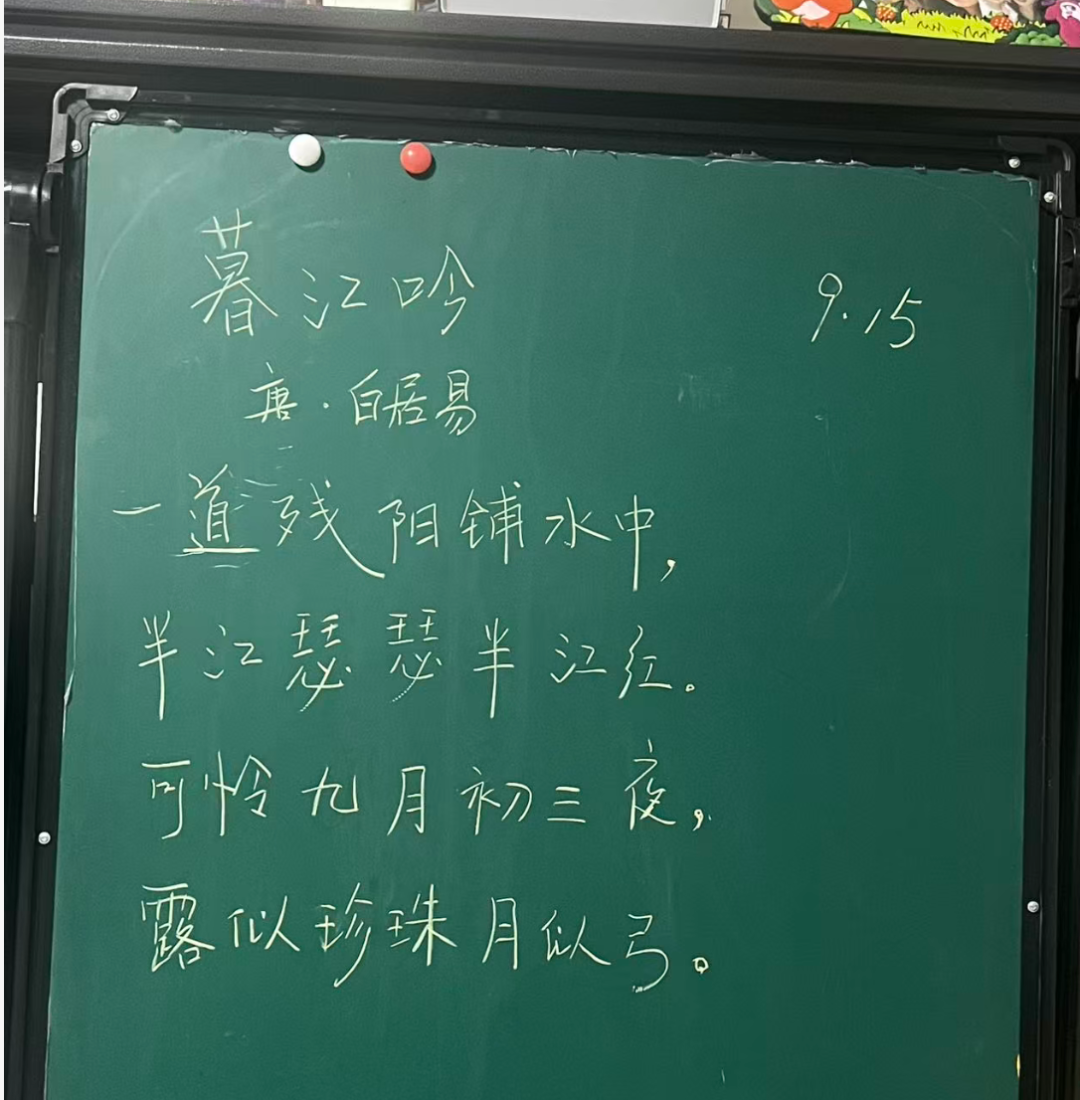 暮江吟 9.15
唐·白居易
一道残阳铺水中，
半江瑟瑟半江红。
可怜九月初三夜，
露似珍珠月似弓。